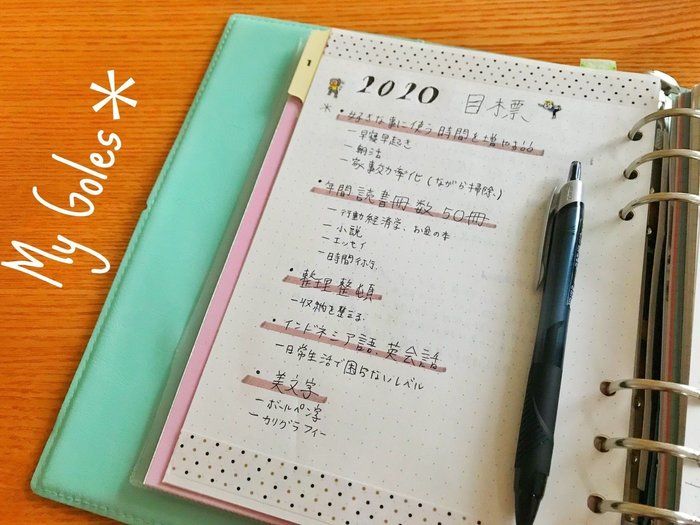 My Goles*
1
2020 目標
* ・好きな事に使う時間を増やる
ー早寝早起き
ー朝活
ー家事効率化(ながら掃除)
・年間読書冊数50冊
ー行動経済学、お金の本
ー小説
ーエッセイ
ー時間術
・整理整頓
ー収納を整える
・インドネシア語、英会話
ー日常生活で困らないレベル
・美文字
ーボールペン字
ーカリグラフィー